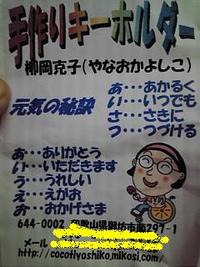 手作りキーホルダー
柳岡克子(やなおかよしこ)
元気の秘訣
あ…あかるく
い…いつでも
さ…さきに
つ…つづける
あ…ありがとう
い…いただきます
う…うれしい
え…えがお
お…おかげさま
644-0002 和歌山県御坊市 297-1
メール
http://cocotiyoshiko.mikosi.com/